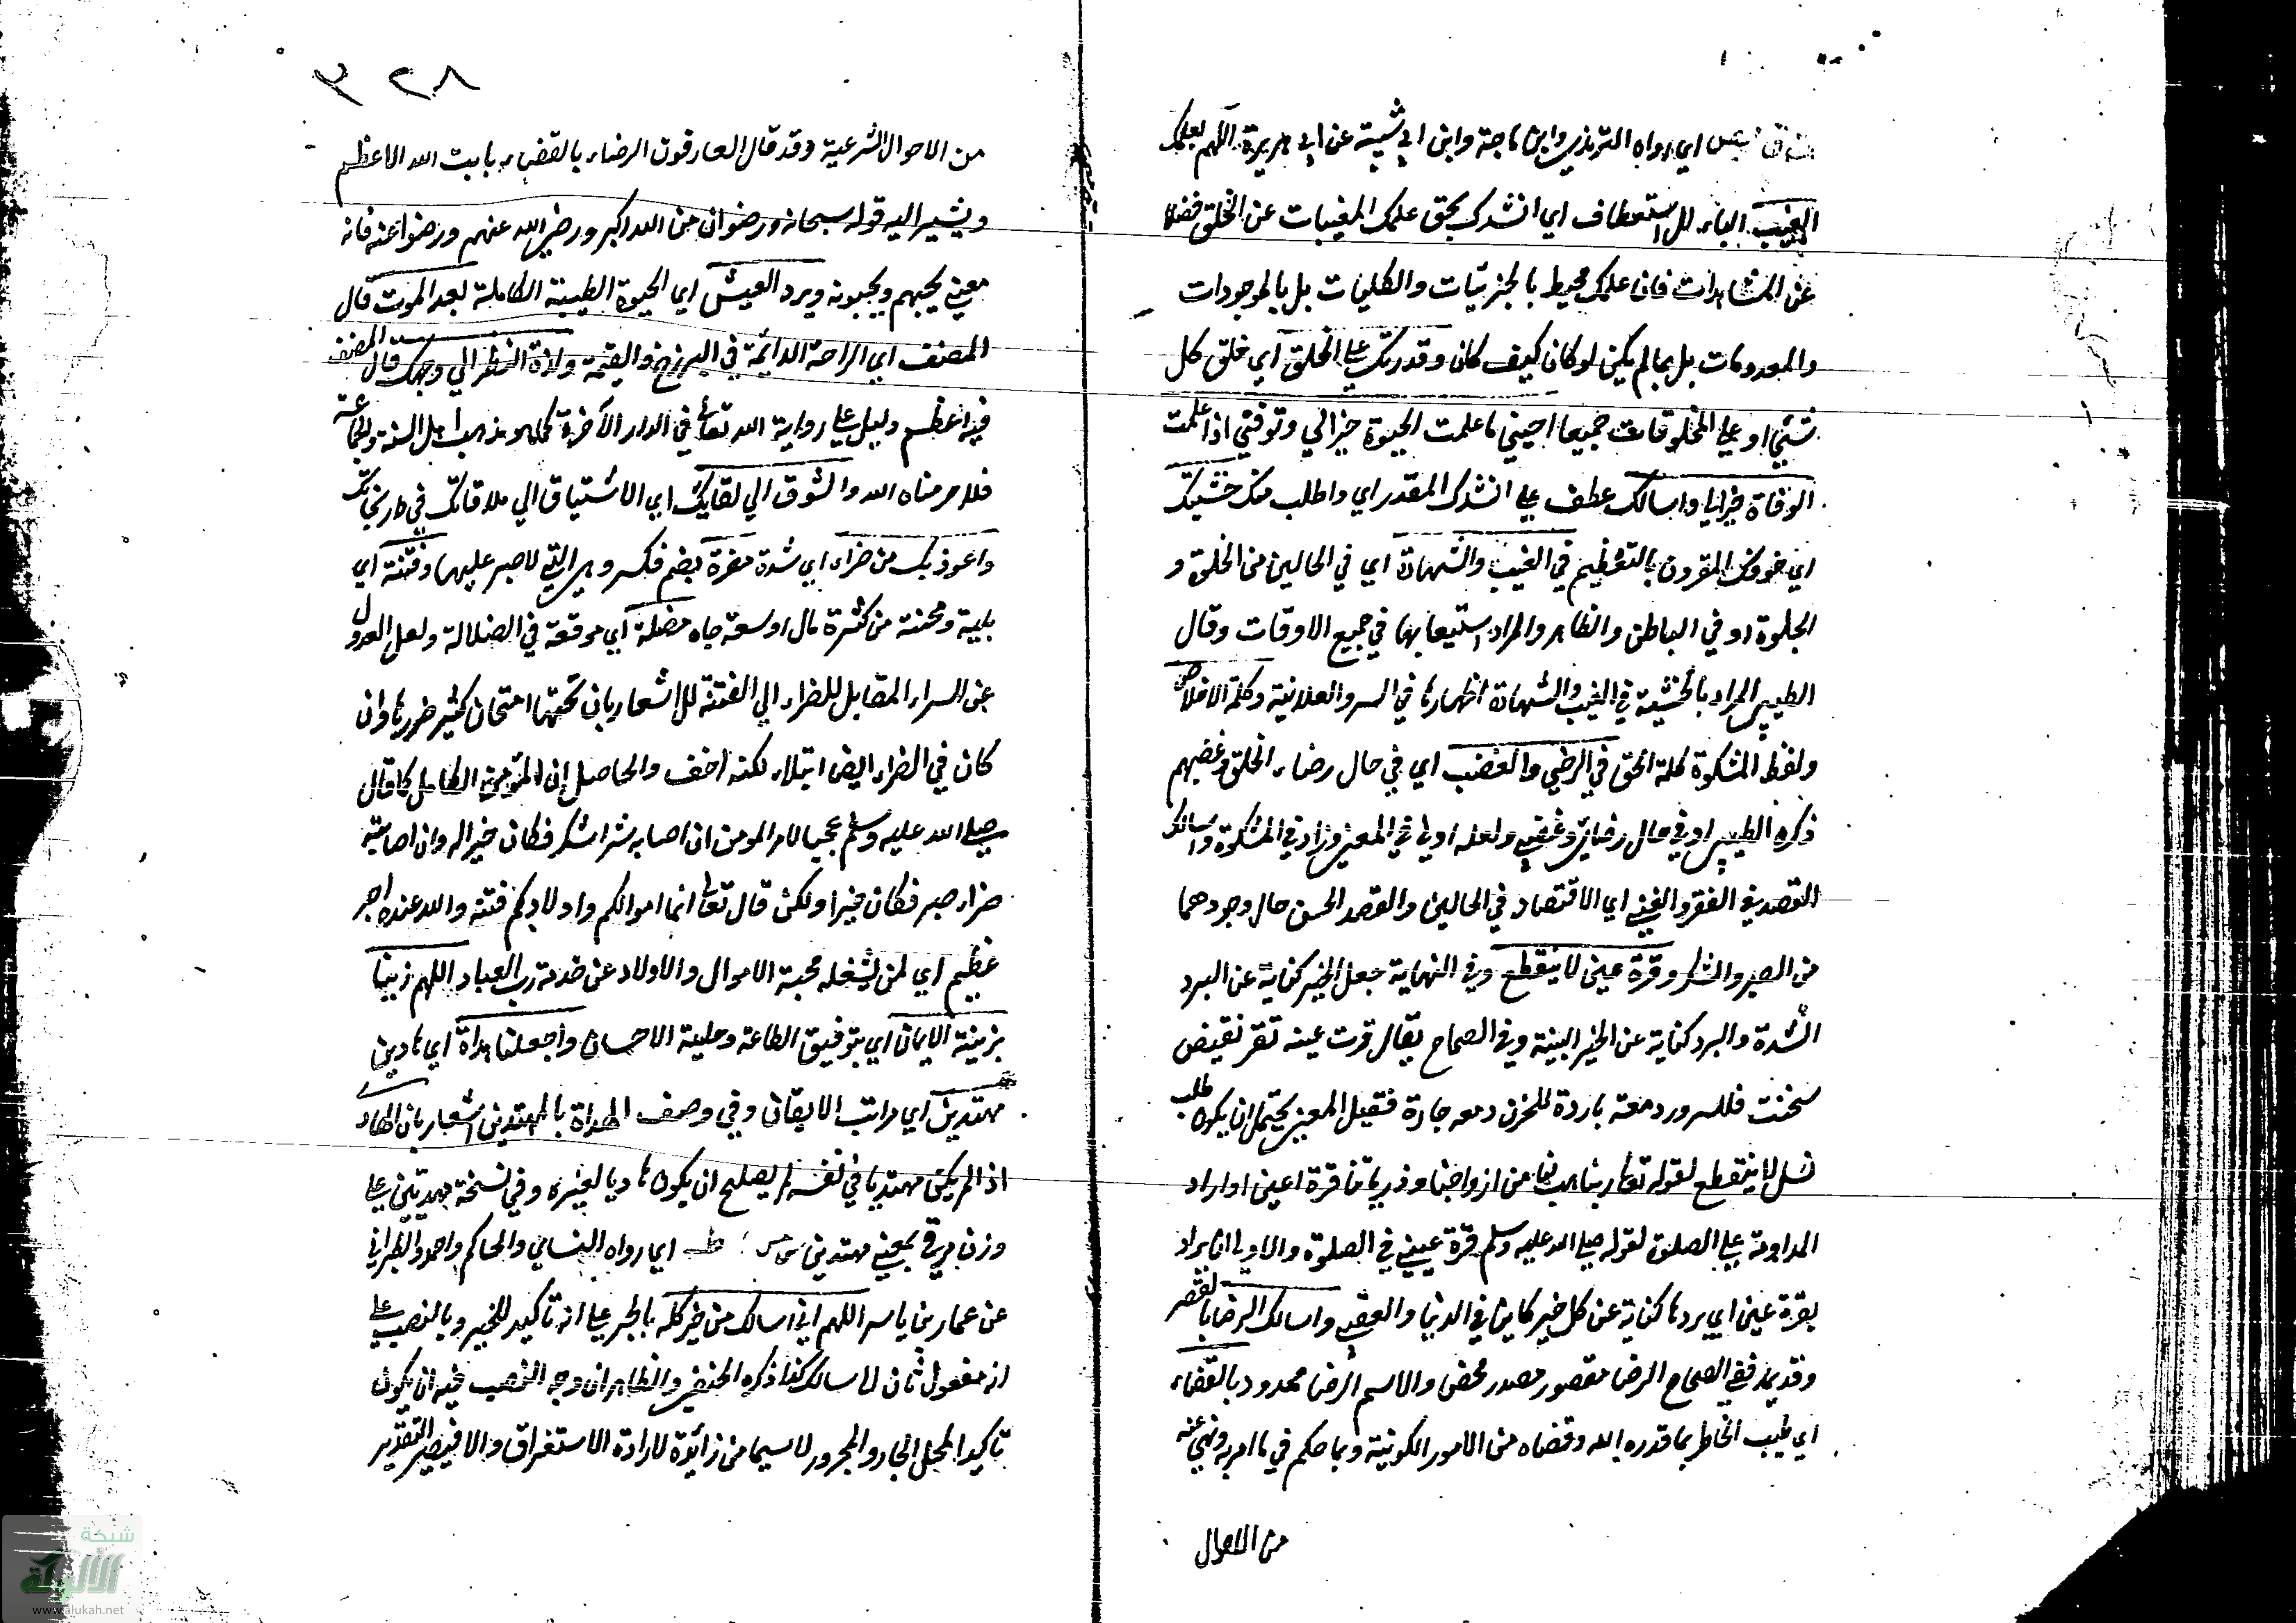 ت ق مص اي رواه الترمذي وابن ماجة وابن ابي شيبة عن ابي هريرة اللهم بعلمك
الغيب الباء للاستعطاف اي انشدك بحق علمك المغيبات عن الخلق فضلا
عن المشاهدات فان علمك محيط بالجزئيات والكليات بل بالموجودات
والمعدومات بل بما لم يكن لو كان كيف كان وقدرتك علي الخلق اي خلق كل
شيئ او علي المخلوقات جميعا احيني ما علمت الحيوة خيرا لي وتوفني اذا علمت
الوفاة خيرا لي واسالك عطف علي انشدك المقدر اي واطلب منك خشيتك
اي خوفك المقرون بالتعظيم في الغيب والشهادة اي في الحالين من الخلوة و
الجلوة او في الباطن والظاهر والمراد استيعابها في جميع الاوقات وقال
الطيبي المراد بالخشية في الغيب والشهادة اظهارها في السر والعلانية وكلمة الاخلاص
ولفظ المشكوة كلمة الحق في الرضي والغضب اي في حال رضاء الخلق وغضبهم
ذكره الطيبي او في حال رضاي وغضبي ولعله اولي في المعني وزاد في المشكوة واسالك
القصد في الفقر والغني اي الاقتصاد في الحالين والقصد الحسن حال وجودهما
من الصبر والشكر وقرة عين لا ينقطع وفي النهاية جعل الخير كناية عن البرد
الشدة والبرد كناية عن الخير البينة وفي الصحاح يقال قرت عينه تقر نقيض
سخنت فللسرور دمعة باردة للحزن دمعه حارة فقيل المعني يحتمل ان يكون طلب
نسل لا ينقطع لقوله تعالي ربنا هب لنا من ازواجنا وذرياتنا قرة اعين او اراد
المداومة علي الصلوة لقوله صلي الله عليه وسلم قرة عيني في الصلوة والاولي ان يراد
بقرة عين اي بردها كناية عن كل خير كاين في الدنيا والعقبي واسالك الرضا بالقصر
وقد يمد ففي الصحاح الرضا مقصور مصدر محض والاسم الرضا ممدود بالقضاء
اي طيب الخاطر بما قدره الله وقضاه من الامور الكونية وبما حكم في ما امر به ونهي عنه
من الاحوال
٣٢٨
من الاحوال الشرعية وقد قال العارفون الرضاء بالقضاء باب الله الاعظم
ويشير اليه قوله سبحانه ورضوان من الله اكبر ورضي الله عنهم ورضوا عنه فانه
معني يحبهم ويحبونه وبرد العيش اي الحيوة الطيبة الكاملة بعد الموت قال
المصنف اي الراحة الدائمة في البرزخ والقيمة ولذة النظر الي وجهك قال المصنف
فيه اعظم دليل علي رواية الله تعالي في الدار الآخرة كما هو مذهب اهل السنة والجماعة
فلا حرمناه الله والشوق الي لقايك اي الاشتياق الي ملاقاتك في دار نجاتك
واعوذ بك من ضراء اي شدة مضرة بضم فكسر وهي التي لا صبر عليها وفتنة اي
بلية ومحنة من كثرة مال او سعة جاه مضلة اي موقعة في الضلالة ولعل العدول
عن السراء المقابل للضراء الي الفتنة للاشعار بان تحتها امتحان كثير ضررها وان
كان في الضراء ايضا ابتلاء لكنه اخف والحاصل ان المؤمن الكامل كما قال
صلي الله عليه وسلم عجبا لامر المومن ان اصابه سراء شكر فكان خيرا له وان اصابته
ضراء صبر فكان خيرا ولكن قال تعالي انما اموالكم واولادكم فتنة والله عنده اجر
عظيم اي لمن لم يشغله محبة الاموال والاولاد عن خدمة رب العباد اللهم زينا
بزينة الايمان اي بتوفيق الطاعة وحلية الاحسان واجعلنا هداة اي هادين
مهتدين اي مراتب الايقان وفي وصف الهداة بالمهتدين اشعار بان الهاد
اذا لم يكن مهتديا في نفسه لم يصلح ان يكون هاديا لغيره وفي نسخة مهديين علي
وزن مرقي بمعني مهتدين س مس ا ط اي رواه النساي والحاكم واحمد والطبراني
عن عمار بن ياسر اللهم اني اسالك من خير كله بالجر علي انه تاكيد للخير وبالنصب علي
انه مفعول ثان لاسالك كذا ذكره الحنفي والظاهر ان وجه النصب فيه ان يكون
تاكيدا لمحل الجار والمجرور لا سيما من زائدة لارادة الاستغراق والا فيصير التقدير